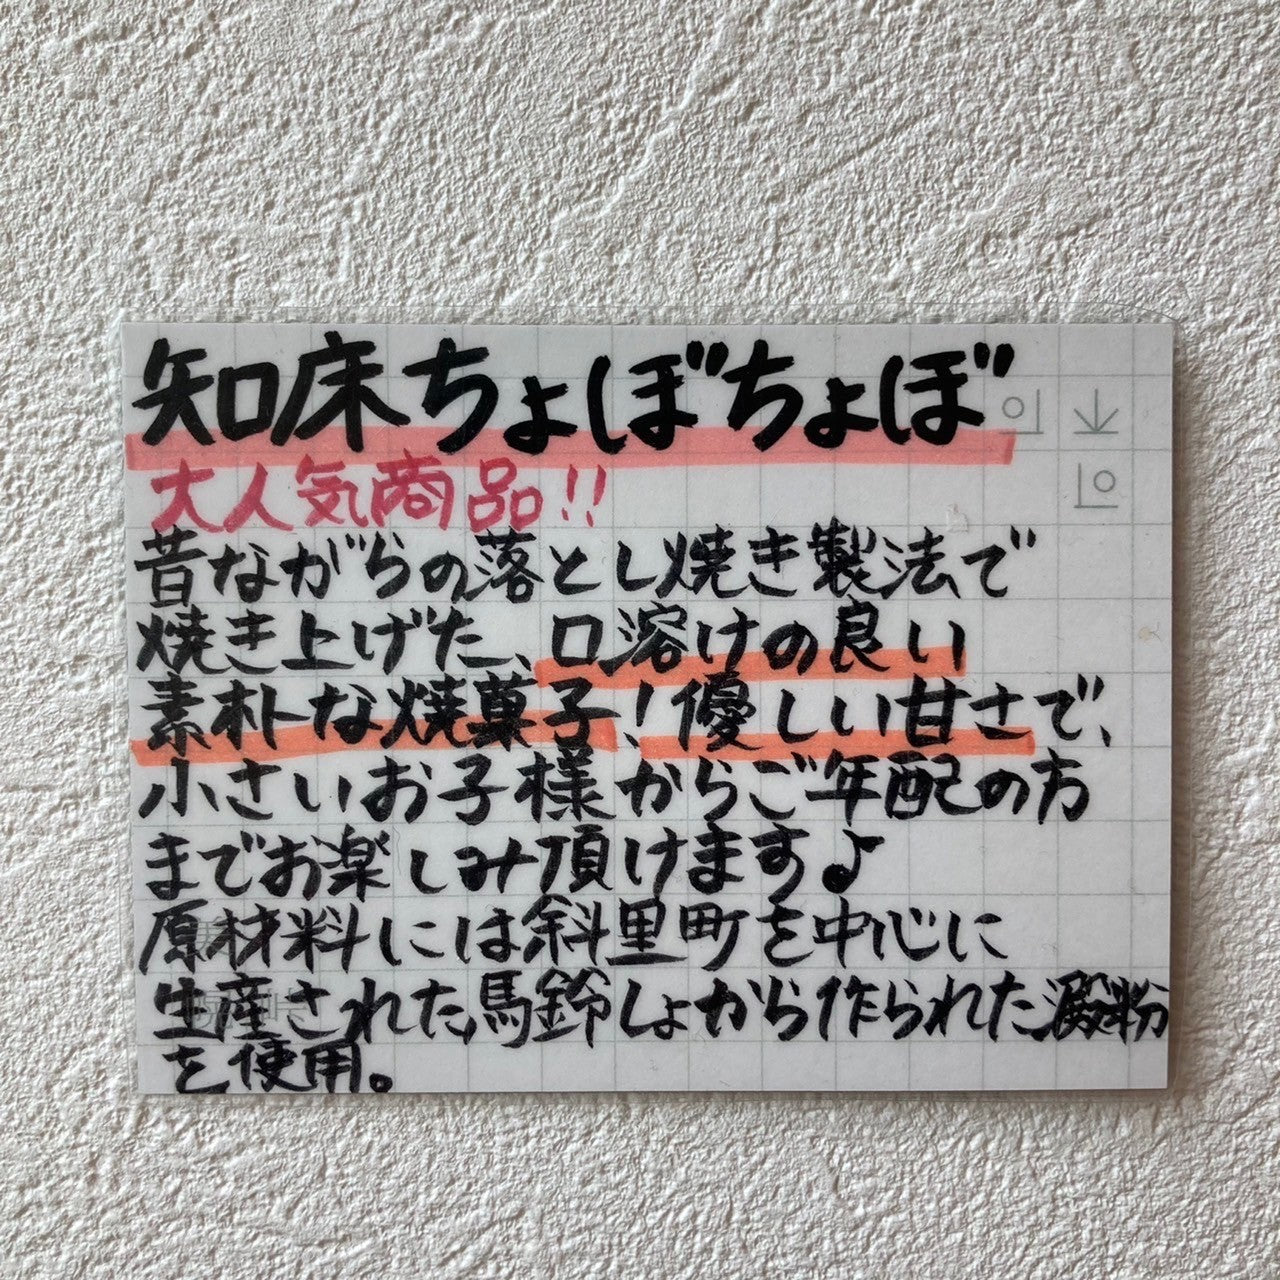 知床ちょぼちょぼ
大人気商品!!
昔ながらの落とし焼き製法で
焼き上げた、口溶けの良い
素朴な焼菓子!優しい甘さで、
小さいお子様からご年配の方
までお楽しみ頂けます♪
原材料には斜里町を中心に
生産された馬鈴しょから作られた澱粉
を使用。